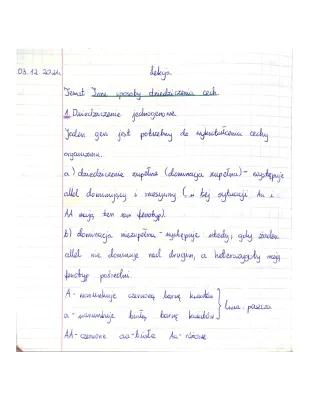 03.12.2021r. Lekcja
Temat: Inne sposoby dziedziczenia cech.
1. Dziedziczenie jednogenowe.
Jeden gen jest potrzebny do wykształcenia cechy
organizmu.
a) dziedziczenie zupełne (dominacja zupełna) - występuje
allel dominujący i recesywny (w tej sytuacji Aa i
AA mają ten sam fenotyp).
b) dominacja niezupełna - występuje wtedy, gdy żaden
allel nie dominuje nad drugim, a heterozygoty mają
fenotyp pośredni.
A - warunkuje czerwoną barwę kwiatów
a - warunkuje białą barwę kwiatów } lwia paszcza
AA - czerwone aa - białe Aa - różowe